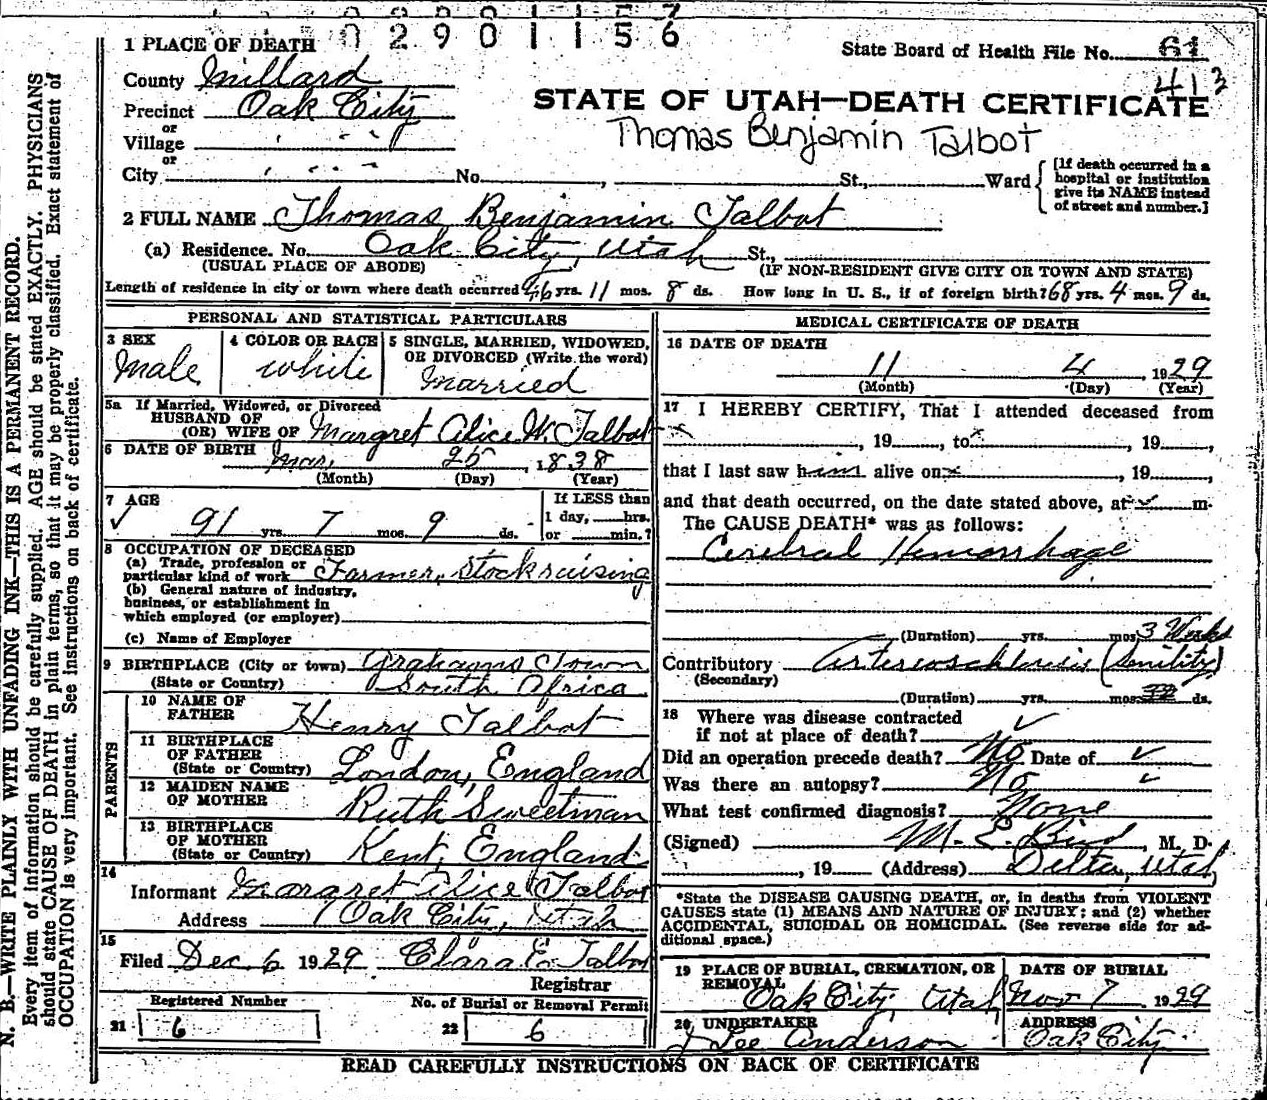 0 2 9 0 1 1 5 6
1 PLACE OF DEATH
State Board of Health File No. 61
413
County Millard
Precinct Oak City
or
Village " "
or
City " " No. , St., Ward
[If death occurred in a hospital or institution give its NAME instead of street and number.]
STATE OF UTAH—DEATH CERTIFICATE
Thomas Benjamin Talbot
2 FULL NAME Thomas Benjamin Talbot
(a) Residence. No. Oak City, Utah St.,
(USUAL PLACE OF ABODE) (IF NON-RESIDENT GIVE CITY OR TOWN AND STATE)
Length of residence in city or town where death occurred 46 yrs. 11 mos. 8 ds. How long in U. S., if of foreign birth? 68 yrs. 4 mos. 9 ds.
PERSONAL AND STATISTICAL PARTICULARS
3 SEX Male
4 COLOR OR RACE white
5 SINGLE, MARRIED, WIDOWED, OR DIVORCED (Write the word) Married
5a If Married, Widowed, or Divorced
HUSBAND OF
(OR) WIFE OF Margret Alice W. Talbot
6 DATE OF BIRTH Mar, 25, 1838
(Month) (Day) (Year)
7 AGE
✓ 91 yrs. 7 mos. 9 ds.
If LESS than 1 day, hrs. or min.?
8 OCCUPATION OF DECEASED
(a) Trade, profession or particular kind of work Farmer, Stockraising
(b) General nature of industry, business, or establishment in which employed (or employer)
(c) Name of Employer
9 BIRTHPLACE (City or town) Grahams Town
(State or Country) South Africa
PARENTS
10 NAME OF FATHER Henry Talbot
11 BIRTHPLACE OF FATHER (State or Country) London, England
12 MAIDEN NAME OF MOTHER Ruth Sweetman
13 BIRTHPLACE OF MOTHER (State or Country) Kent, England
14
Informant Margret Alice Talbot
Address Oak City, Utah
15
Filed Dec 6 1929 Clara E. Talbot
Registrar
Registered Number No. of Burial or Removal Permit
21 6 22 6
MEDICAL CERTIFICATE OF DEATH
16 DATE OF DEATH
11 4, 1929
(Month) (Day) (Year)
17 I HEREBY CERTIFY, That I attended deceased from
x , 19 , to x , 19 ,
that I last saw him alive on x , 19 ,
and that death occurred, on the date stated above, at ✓ m.
The CAUSE DEATH* was as follows:
Cerebral Hemorrhage
(Duration) yrs. mos. 3 Weeks
Contributory Arterioschlerosis (Senility)
(Secondary)
(Duration) yrs. mos. ds.
18 Where was disease contracted
if not at place of death? ✓
Did an operation precede death? No Date of ✓
Was there an autopsy? No ✓
What test confirmed diagnosis? None
(Signed) M. E. Bird, M. D.
, 19 (Address) Delta, Utah,
*State the DISEASE CAUSING DEATH, or, in deaths from VIOLENT
CAUSES state (1) MEANS AND NATURE OF INJURY; and (2) whether
ACCIDENTAL, SUICIDAL OR HOMICIDAL. (See reverse side for ad-
ditional space.)
19 PLACE OF BURIAL, CREMATION, OR REMOVAL Oak City, Utah
DATE OF BURIAL Nov 7 1929
20 UNDERTAKER Lee Anderson
ADDRESS Oak City
READ CAREFULLY INSTRUCTIONS ON BACK OF CERTIFICATE
N. B.—WRITE PLAINLY WITH UNFADING INK—THIS IS A PERMANENT RECORD.
Every item of information should be carefully supplied. AGE should be stated EXACTLY. PHYSICIANS
should state CAUSE OF DEATH in plain terms, so that it may be properly classified. Exact statement of
OCCUPATION is very important. See instructions on back of certificate.